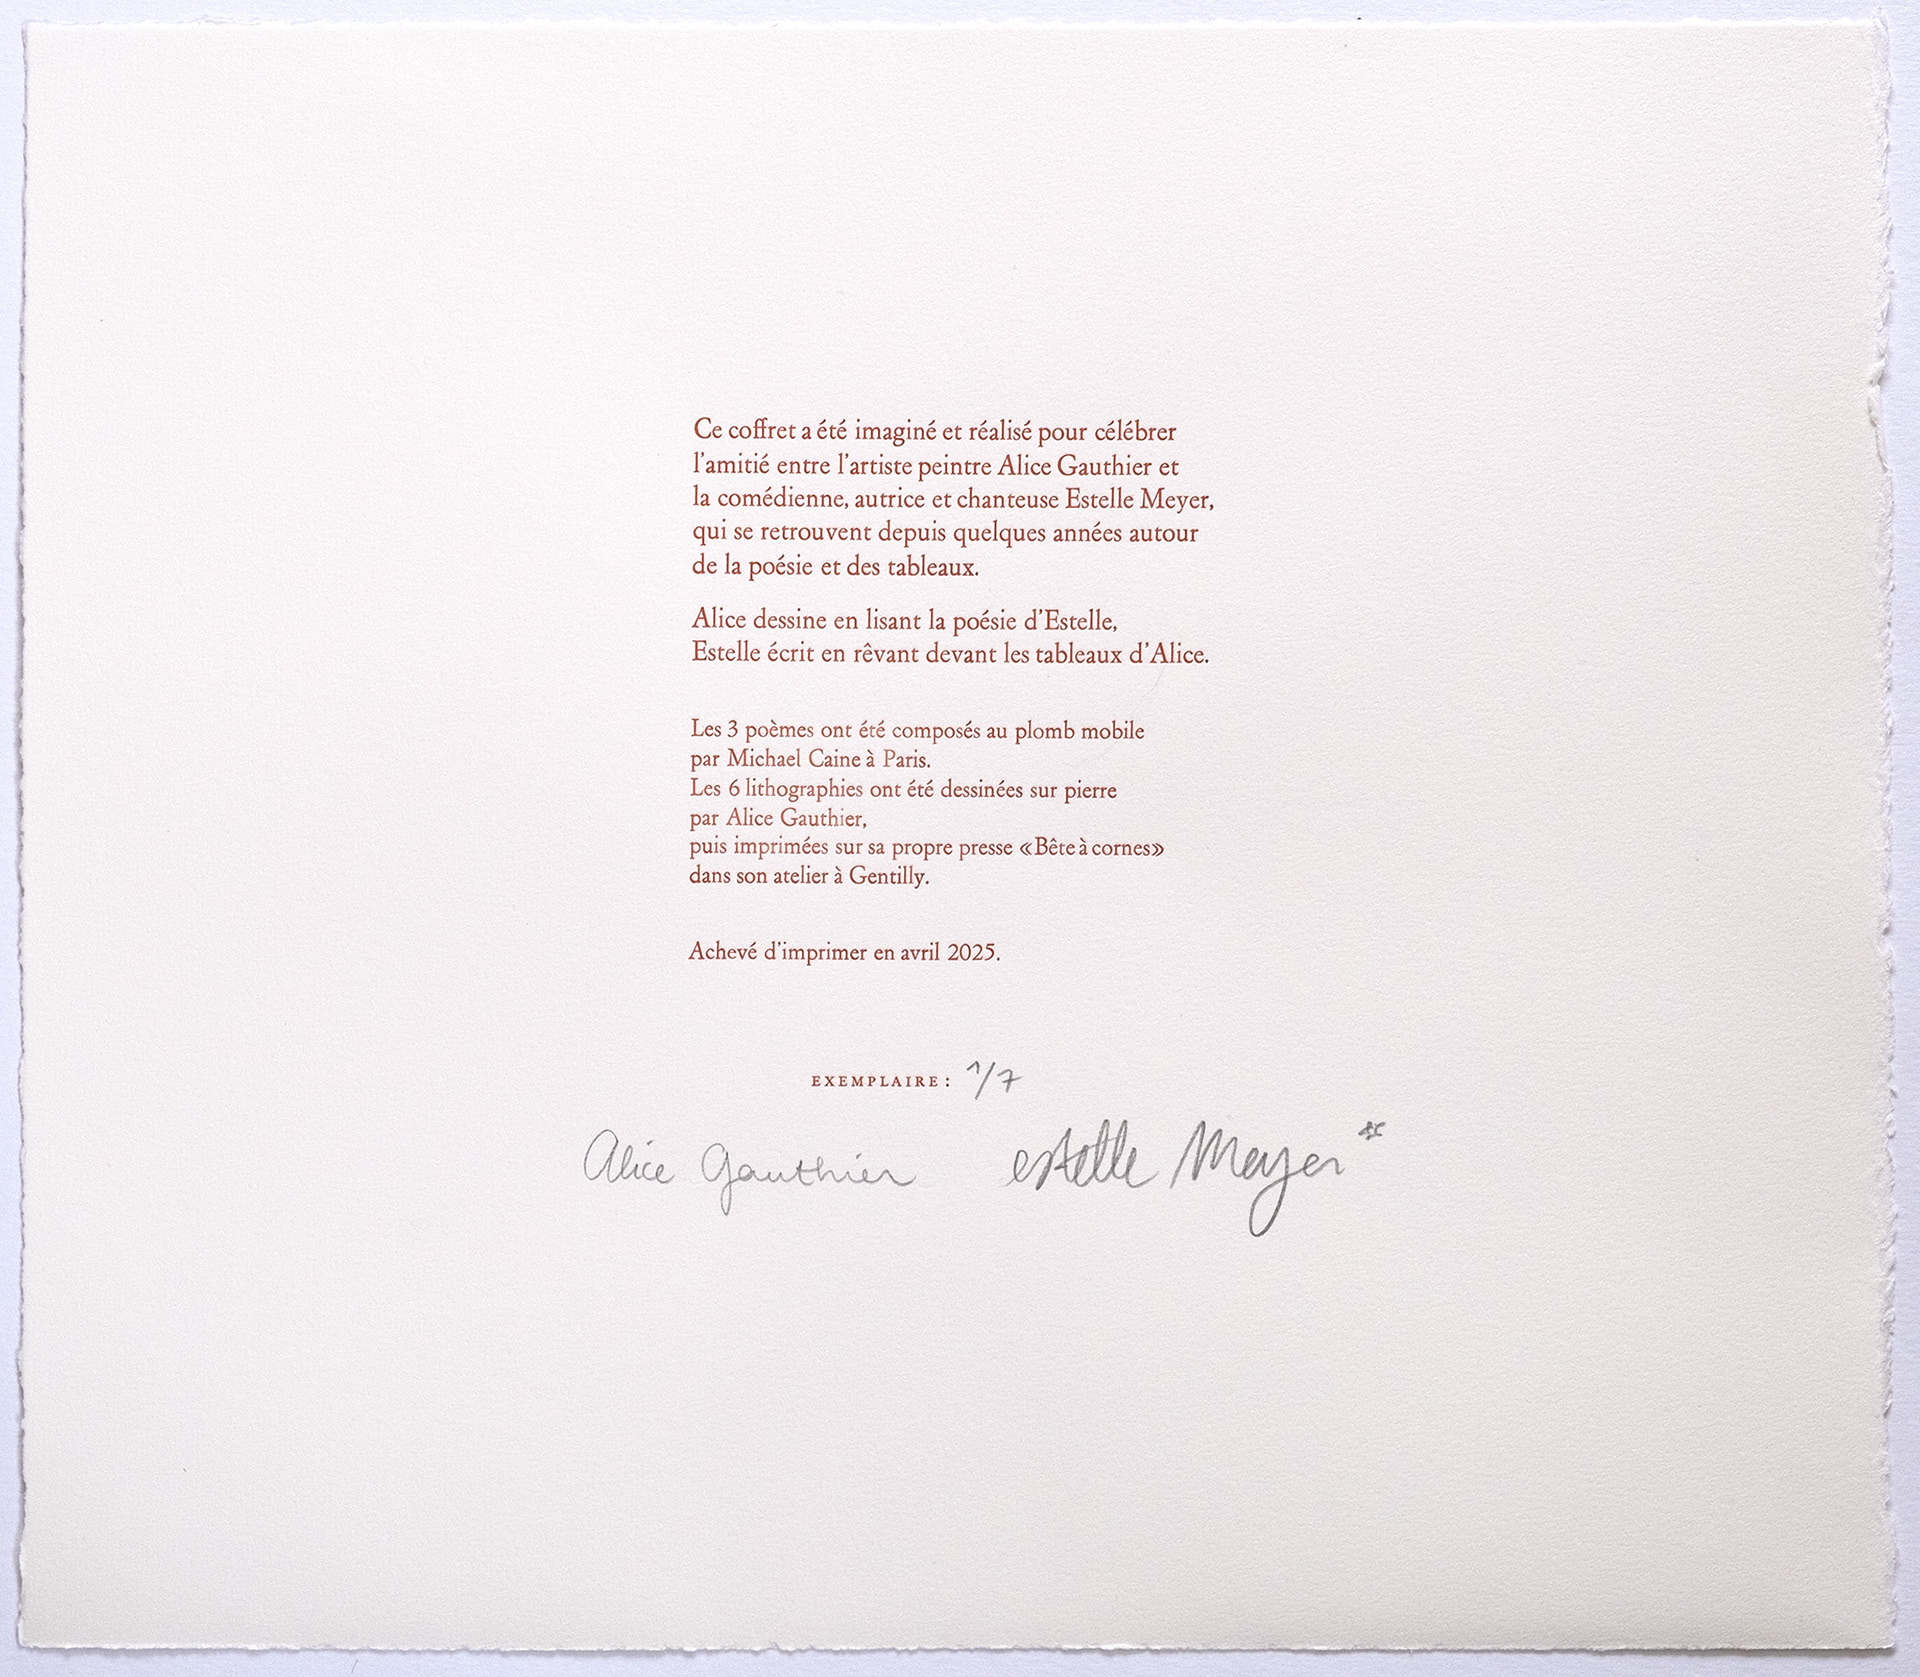 Ce coffret a été imaginé et réalisé pour célébrer
l'amitié entre l'artiste peintre Alice Gauthier et
la comédienne, autrice et chanteuse Estelle Meyer,
qui se retrouvent depuis quelques années autour
de la poésie et des tableaux.
Alice dessine en lisant la poésie d'Estelle,
Estelle écrit en rêvant devant les tableaux d'Alice.
Les 3 poèmes ont été composés au plomb mobile
par Michael Caine à Paris.
Les 6 lithographies ont été dessinées sur pierre
par Alice Gauthier,
puis imprimées sur sa propre presse «Bête à cornes»
dans son atelier à Gentilly.
Achevé d'imprimer en avril 2025.
EXEMPLAIRE : 1/7
Alice Gauthier estelle Meyer